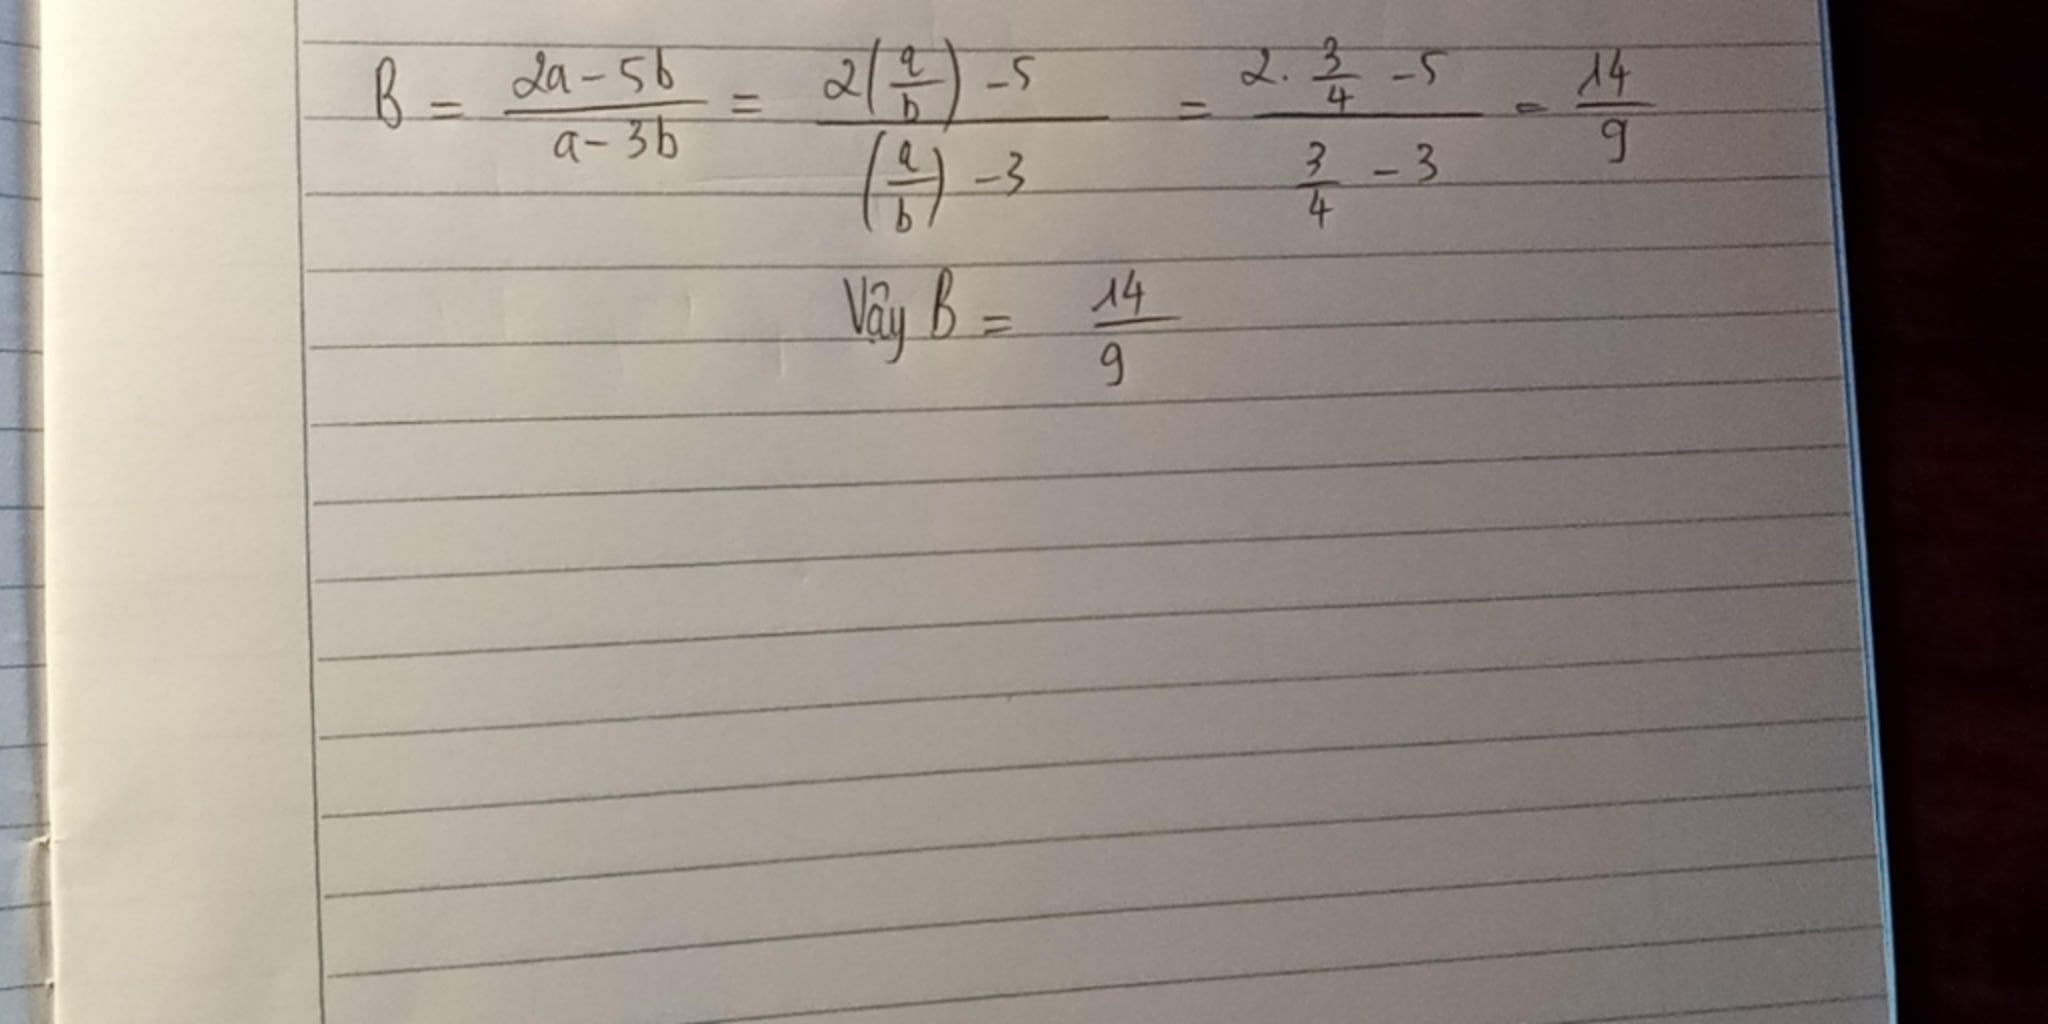 B = \frac{2a - 5b}{a - 3b} = \frac{2(\frac{a}{b}) - 5}{(\frac{a}{b}) - 3} = \frac{2 . \frac{3}{4} - 5}{\frac{3}{4} - 3} = \frac{14}{9}
Vậy B = \frac{14}{9}